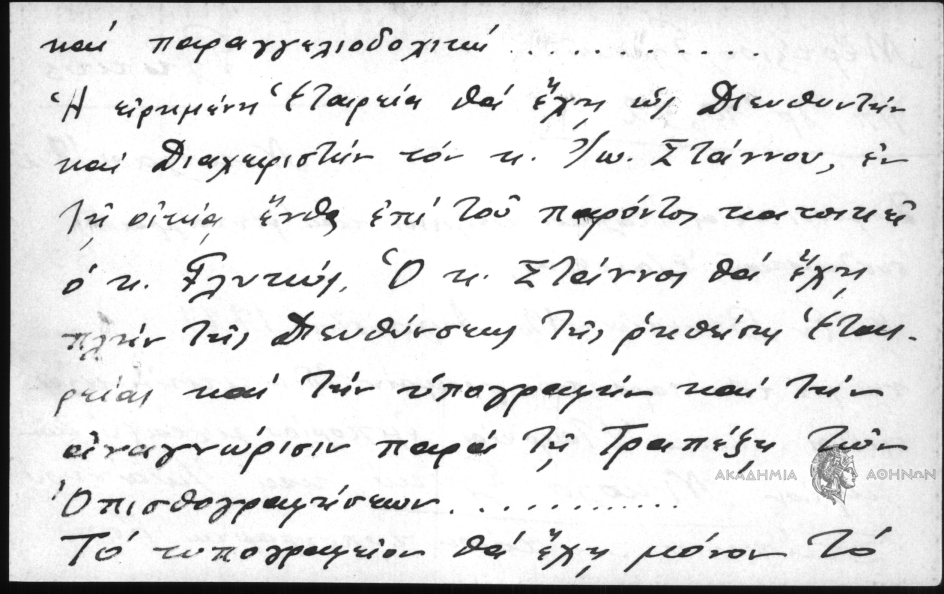 καί παραγγελιοδοχικαί ..............
Ἡ εἰρημένη Ἑταιρεία θά ἔχῃ ὡς Διευθυντήν
καί Διαχειριστήν τόν κ. Ἰω. Στάννον, ἐν
τῇ οἰκίᾳ ἔνθα ἐπί τοῦ παρόντος κατοικεῖ
ὁ κ. Γλυκύς. Ὁ κ. Στάννος θά ἔχῃ
πλήν τῆς Διευθύνσεως τῆς ῥηθείσης Ἑται-
ρείας καί τήν ὑπογραφήν καί τήν
ἀναγνώρισιν παρά τῇ Τραπέζῃ τῶν
Ὀπισθογραφήσεων..............
Τό τυπογραφεῖον θά ἔχῃ μόνον τό
ΑΚΑΔΗΜΙΑ ΑΘΗΝΩΝ